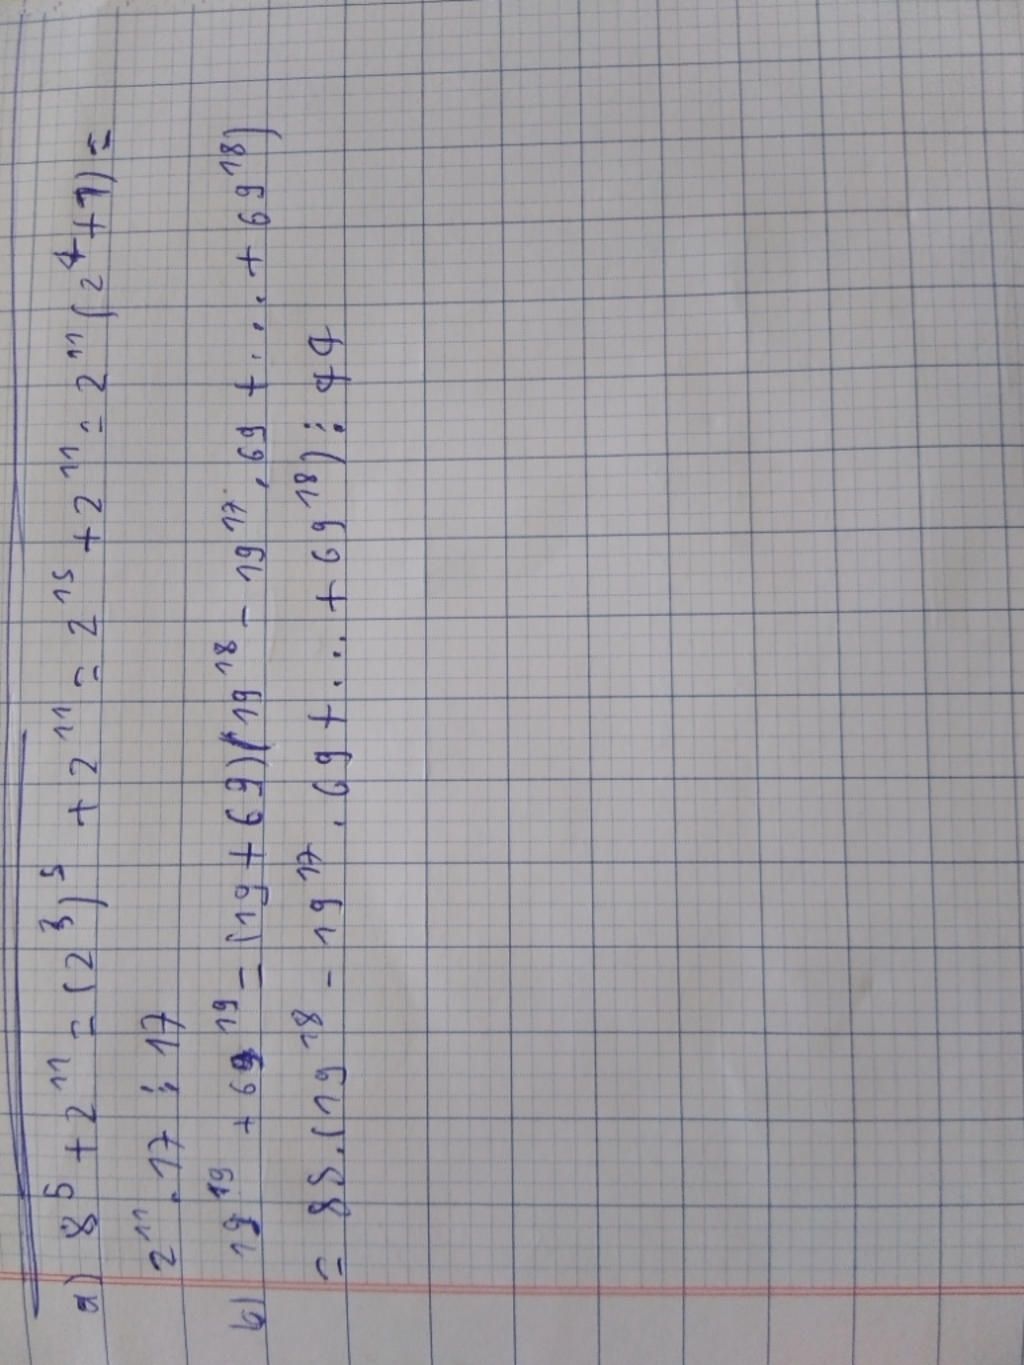 a) 8⁵ + 2¹¹ = (2³)⁵ + 2¹¹ = 2¹⁵ + 2¹¹ = 2¹¹(2⁴+1) =
2¹¹.17 ⋮ 17
b) 19¹⁹ + 69¹⁹ = (19 + 69)(19¹⁸ − 19¹⁷.69 + ... + 69¹⁸)
= 88.(19¹⁸ − 19¹⁷.69 + ... + 69¹⁸) ⋮ 44